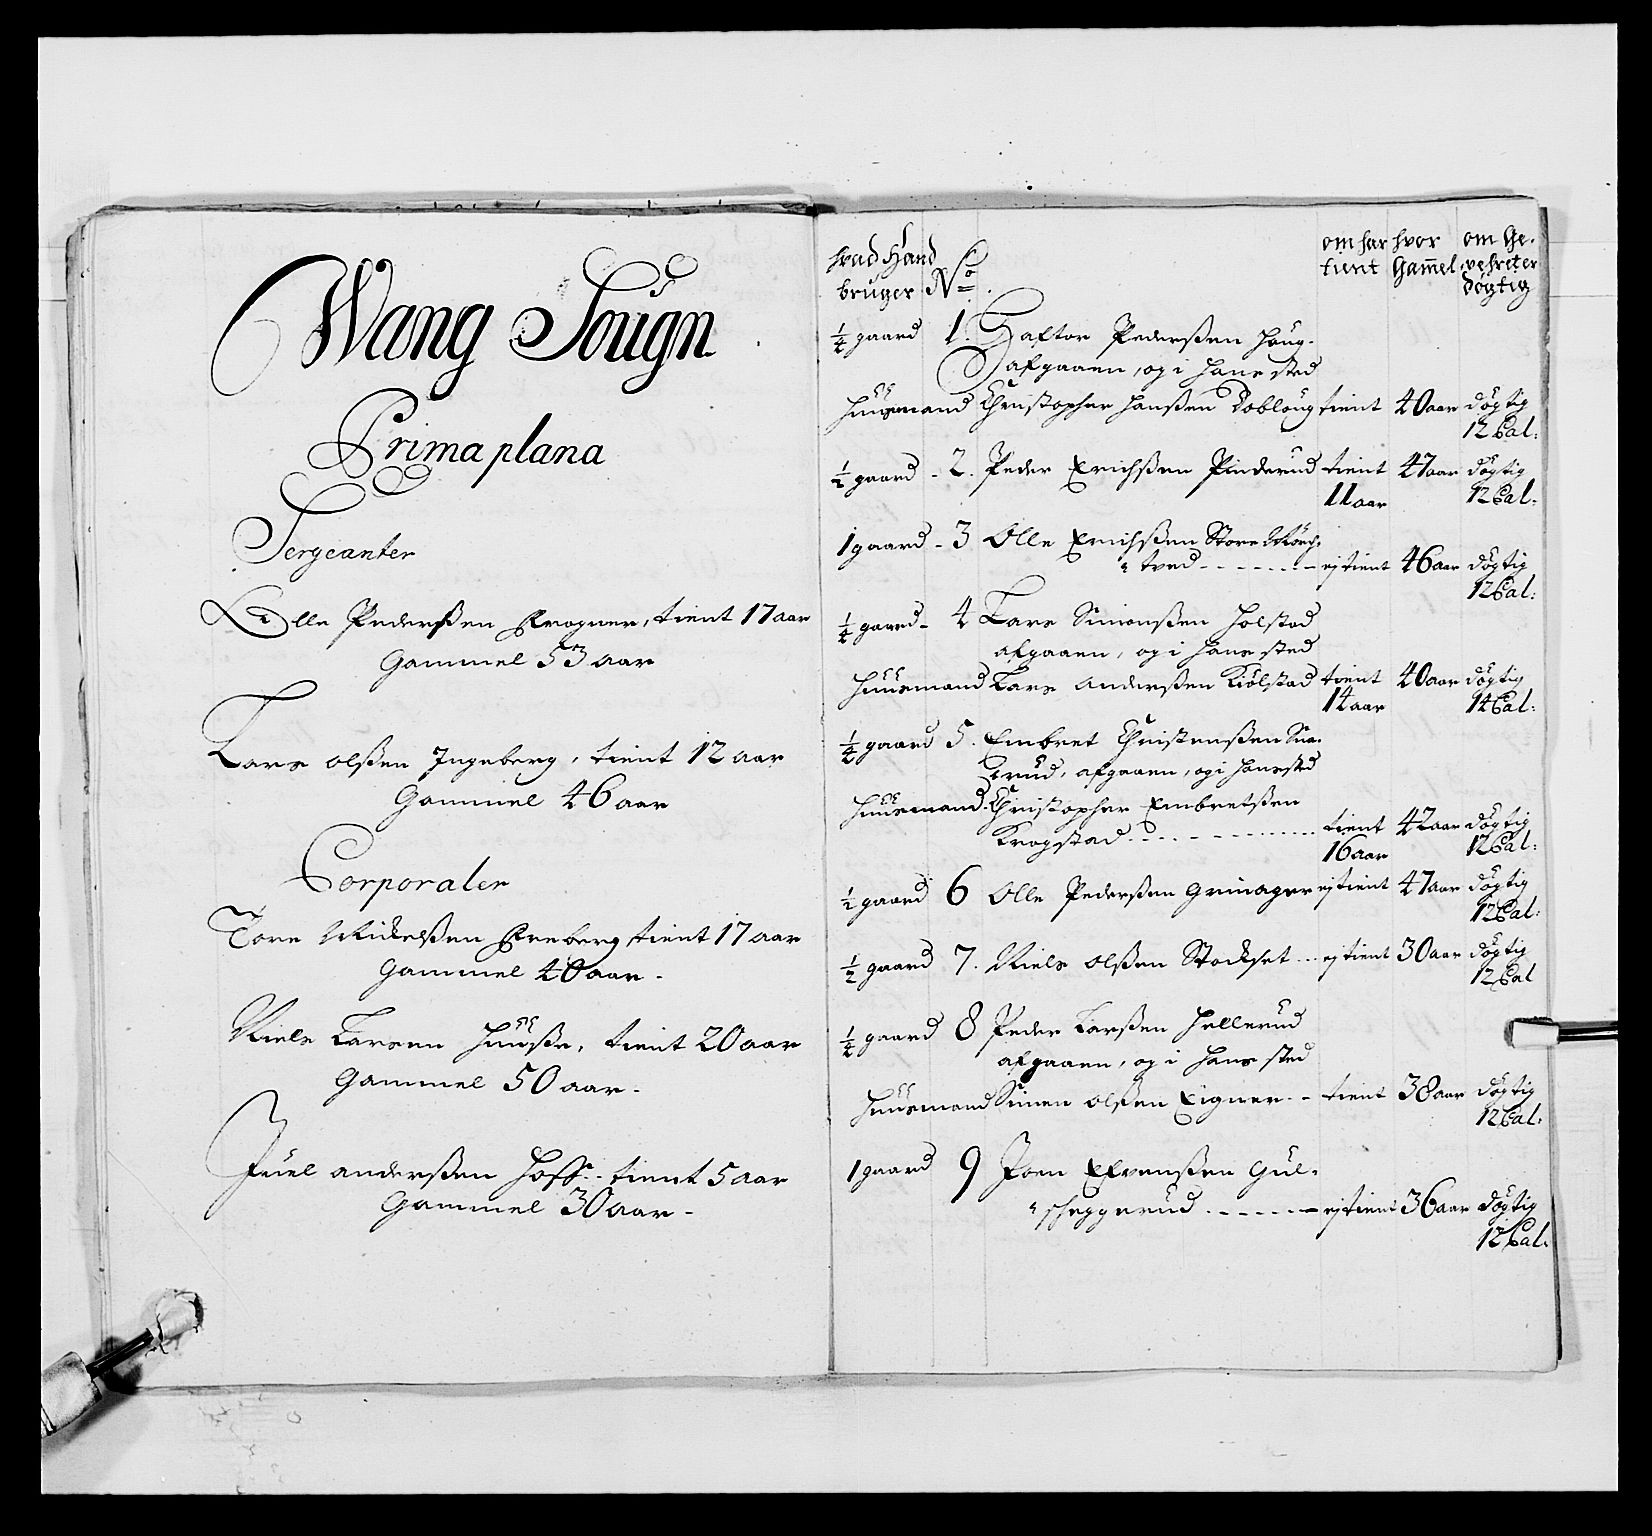 Wang Sougn
Prima plana
Sergeanter
Olle Pederßen Frogner, tient 17 aar
Gammel 53 aar
Lars olßen Ingeberg, tient 12 aar
Gammel 46 aar
Corporaler
Tore Mickelßen Freberg tient 17 aar
Gammel 40 aar.
Niels Larsen Huuße, tient 20 aar
Gammel 50 aar.
Juel anderßen Hoff.. tient 5 aar
Gammel 30 aar.
hvad Hand bruger
No
om har tient
hvor Gam̄el
om Ge- vehret er døgtig
1/4 gaard 1. Haftor Pederßen Houg.
afgaaen, og i hans sted
Huusmand Christopher Hanßen Dobloug tient 40 aar døgtig
12 Cal:
1/2 gaard - 2. Peder Erichßen Pinderud tient 47 aar døgtig
11 aar 12 Cal.
1 gaard - 3 Olle Erichßen Store Mørch-
tved - - - - - - - ej tient 46 aar døgtig
12 Cal:
1/4 gaard - 4 Lars Simonßen Holstad
afgaaen, og i hans sted
Huusmand Lars Anderßen Kiølstad tient 40 aar døgtig
14 aar 14 Cal:
1/4 gaard 5. Embret Christenßen
afgaaen, og i hans sted
Huusmand. Christopher Embretßen
Krogstad - - - - - - - - tient 42 aar døgtig
16 aar 12 Cal:
1/2 gaard 6 Olle Pederßen Grinager ej tient 47 aar døgtig
12 Cal:
1/2 gaard 7. Niels olßen Stockset ... ej tient 30 aar døgtig
12 Cal
1/4 gaard 8 Peder Larßen Hellerud
afgaaen, og i hans sted
Huusmand Simen olßen Eigner. - tient 38 aar døgtig
12 Cal:
1 gaard 9 Joen Efvenßen Gul-
scheggerud . - - - - - ej tient 36 aar døgtig
12 Cal.